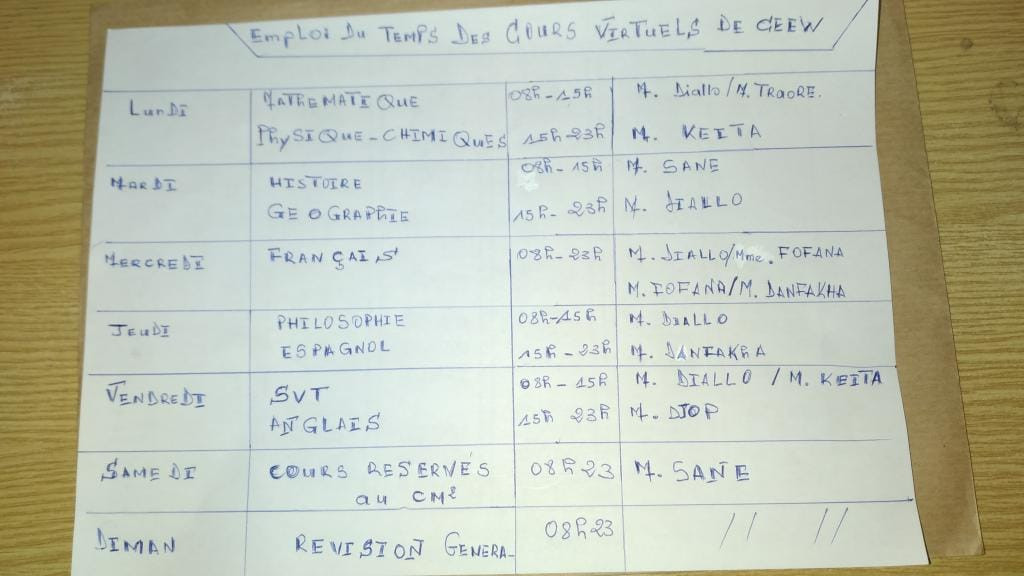 EMPLOI DU TEMPS DES COURS VIRTUELS DE CEEW
LUNDI MATHEMATIQUE 08h-15h M. Diallo/M. TRAORE.
PHYSIQUE-CHIMIQUES 15h-23h M. KEITA
MARDI HISTOIRE 08h-15h M. SANE
GEOGRAPHIE 15h-23h M. DIALLO
MERCREDI FRANÇAIS 08h-23h M. DIALLO/Mme. FOFANA
M. FOFANA/M. DANFAKHA
JEUDI PHILOSOPHIE 08h-15h M. DIALLO
ESPAGNOL 15h-23h M. DANFAKHA
VENDREDI SVT 08h-15h M. DIALLO / M. KEITA
ANGLAIS 15h 23h M. DIOP
SAMEDI COURS RESERVÉS 08h23 M. SANE
au CM²
DIMAN REVISION GENERA- 08h23 // //